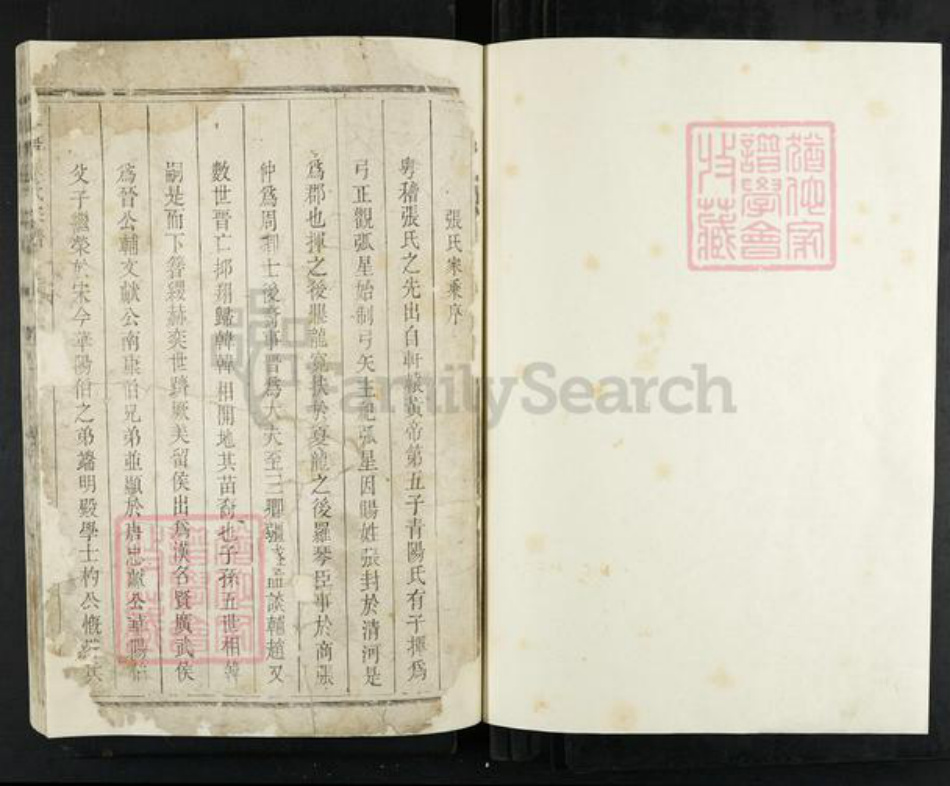 張氏家乘序
粵稽張氏之先出自軒轅黃帝第五子青陽氏有子揮爲
弓正觀弧星始制弓矢主祀弧星因賜姓張封於清河是
爲郡也揮之後龍於夏龍之後羅琴臣事於商張
仲爲周卿士後事晋爲大夫至三卿談輔趙又
數世晋亡翔歸韓韓相開地其苗裔也子孫五世相韓
嗣是而下簪纓赫奕世躋厥美留侯出爲漢名賢廣武侯
爲晉公輔文獻公南康伯兄弟並顯於唐忠獻公華陽伯
父子繼榮於宋今華陽伯之弟端明殿學士杓公慨其
猶他家譜學會收藏
FamilySearch